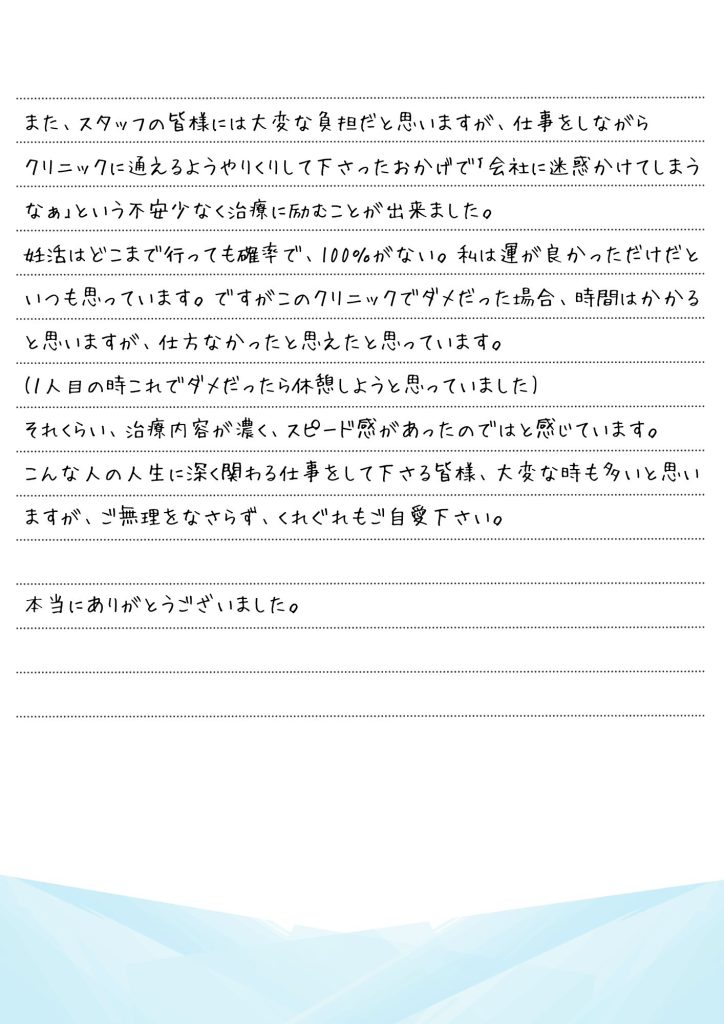 また、スタッフの皆様には大変な負担だと思いますが、仕事をしながら
クリニックに通えるようやりくりして下さったおかげで「会社に迷惑かけてしまう
なぁ」という不安少なく治療に励むことが出来ました。
妊活はどこまで行っても確率で、100%がない。私は運が良かっただけだと
いつも思っています。ですがこのクリニックでダメだった場合、時間はかかる
と思いますが、仕方なかったと思えたと思っています。
(1人目の時これでダメだったら休憩しようと思っていました)
それくらい、治療内容が濃く、スピード感があったのではと感じています。
こんな人の人生に深く関わる仕事をして下さる皆様、大変な時も多いと思い
ますが、ご無理をなさらず、くれぐれもご自愛下さい。
本当にありがとうございました。